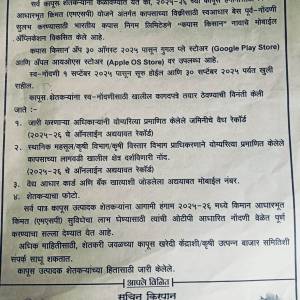 सर्व कापूस शेतकऱ्यांना कळविण्यात येते की, २०२५-२६ च्या
आधारभूत किंमत (एमएसपी) योजने अंतर्गत कापसाच्या विक्रीसाठी स्वआधार बेस पूर्व-नोंदणी
सुलभ करण्यासाठी भारतीय कपास निगम लिमिटेडने "कपास किसान" नावाचे मोबाईल
ॲप्लिकेशन विकसित केले आहे.
कपास किसान ॲप ३० ऑगस्ट २०२५ पासून गुगल प्ले स्टोअर (Google Play Store)
आणि ॲपल आयओएस स्टोअर (Apple OS Store) वर उपलब्ध आहे.
स्व-नोंदणी १ सप्टेंबर २०२५ पासून सुरू होईल आणि ३० सप्टेंबर २०२५ पर्यंत खुली
राहील.
कापूस शेतकऱ्यांना स्व-नोंदणीसाठी खालील कागदपत्रे तयार ठेवण्याची विनंती केली
जाते :-
१. जारी करणाऱ्या अधिकाऱ्यांनी योग्यरित्या प्रमाणित केलेले जमिनीचे वैध रेकॉर्ड
(२०२५-२६ चे ऑनलाईन अद्ययावत रेकॉर्ड)
२. स्थानिक महसूल/कृषी विभाग/कृषि विस्तार विभाग प्राधिकरणाने योग्यरित्या प्रमाणित केलेले
कापसाच्या लागवडी खालील क्षेत्र दर्शविणारी नोंद.
(२०२५-२६ चे ऑनलाईन अद्ययावत रेकॉर्ड)
३. वैध आधार कार्ड आणि बँक खात्याशी जोडलेला अद्ययावत मोबाईल नंबर.
४. शेतकऱ्याचा फोटो.
सर्व पात्र कापूस उत्पादक शेतकऱ्यांना आगामी हंगाम २०२५-२६ मध्ये किमान आधारभूत
किंमत (एमएसपी) सुविधेचा लाभ घेण्यासाठी त्यांची ओटीपी आधारित नोंदणी वेळेत पूर्ण
करण्याचा सल्ला देण्यात येत आहे.
अधिक माहितीसाठी, शेतकरी जवळच्या कापूस खरेदी केंद्राशी/कृषी उत्पन्न बाजार समितीशी
संपर्क साधू शकतात.
कापूस उत्पादक शेतकऱ्यांच्या हितासाठी जारी केलेले.
आपले विनित
सचिन किरपान